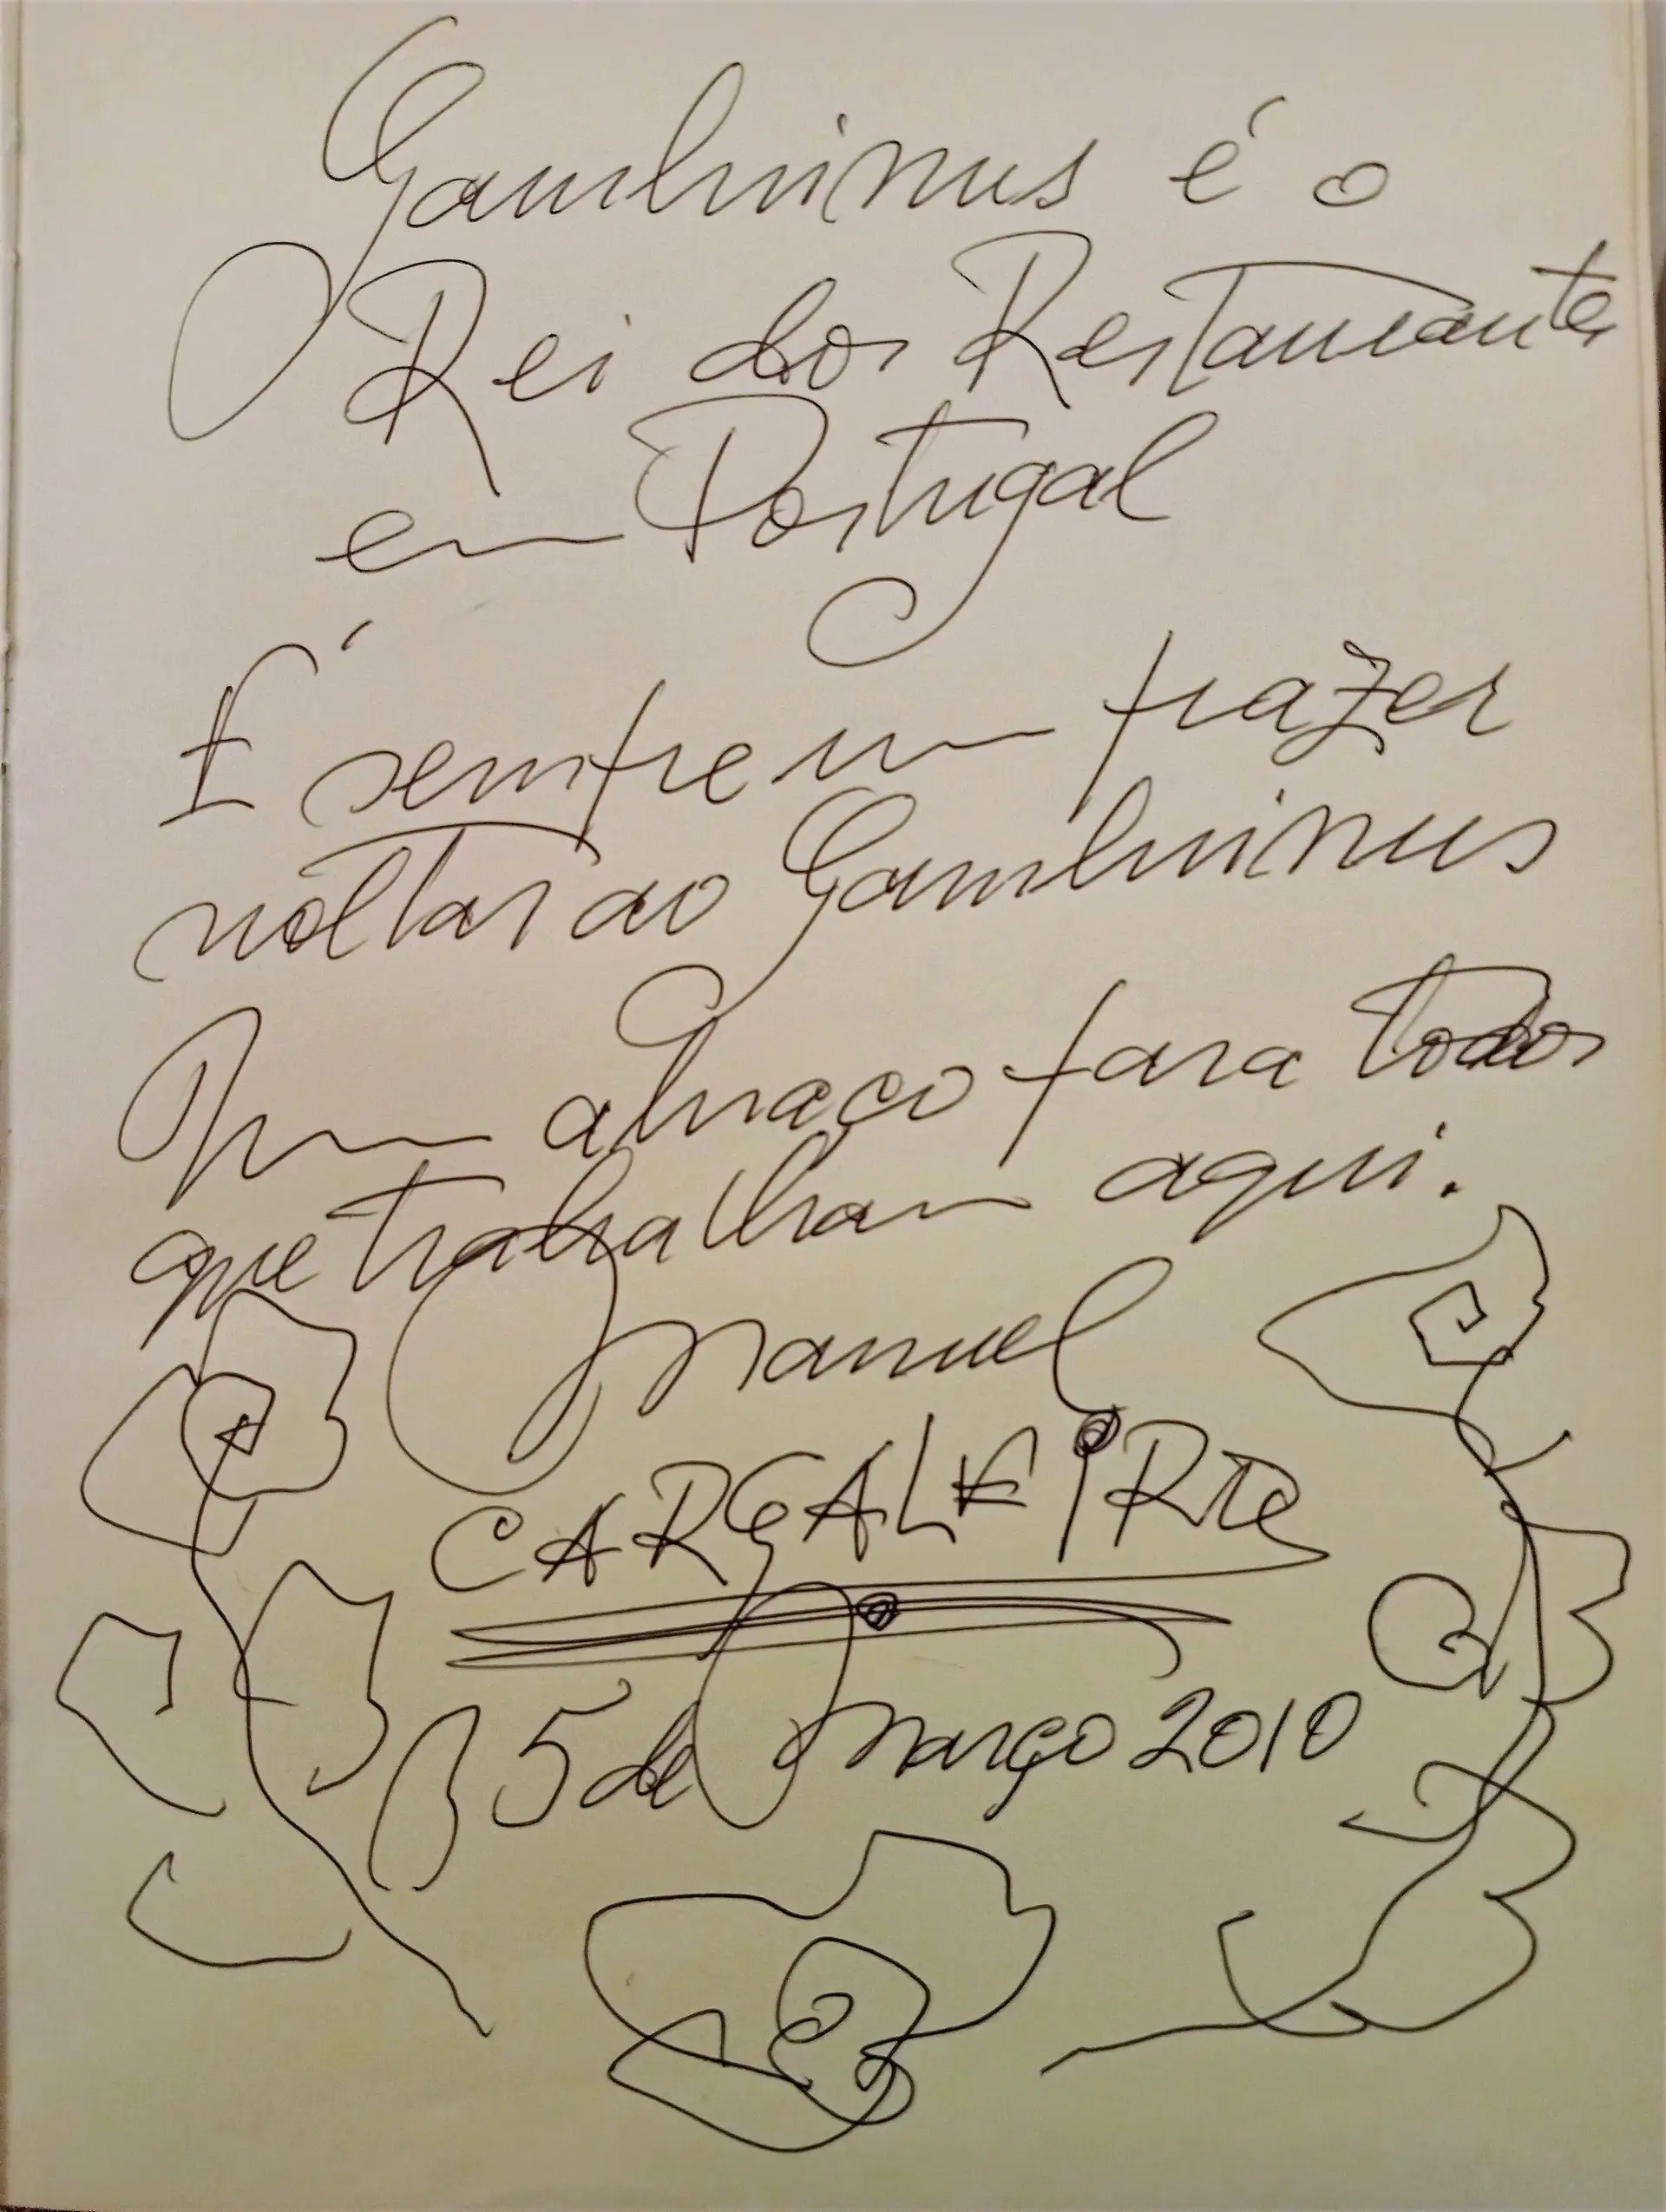 Gambrinus é o
Rei dos Restaurantes
em Portugal
É sempre um prazer
voltar ao Gambrinus
Um abraço para todos
que trabalham aqui.
Manuel
CARGALEIRO
5 de Março 2010